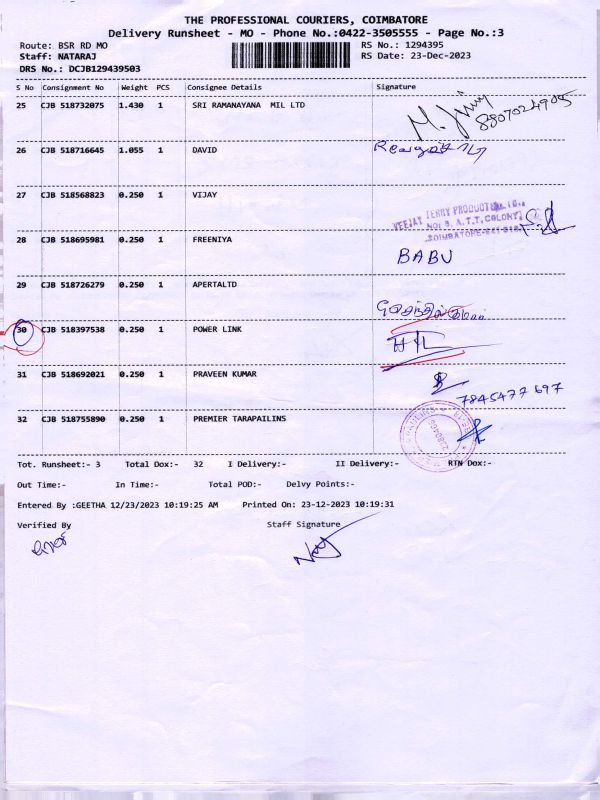 THE PROFESSIONAL COURIERS, COIMBATORE
Delivery Runsheet - MO - Phone No.:0422-3505555 - Page No.:3
Route: BSR RD MO RS No.: 1294395
Staff: NATARAJ RS Date: 23-Dec-2023
DRS No.: DCJB129439503
S No Consignment No Weight PCS Consignee Details Signature
25 CJB 518732075 1.430 1 SRI RAMANAYANA MIL LTD
8807024905
26 CJB 518716645 1.055 1 DAVID
27 CJB 518568823 0.250 1 VIJAY
VEEJAY TERRY PRODUCTS
A.T.T. COLONY
COIMBATORE-641 018
28 CJB 518695981 0.250 1 FREENIYA
BABU
29 CJB 518726279 0.250 1 APERTALTD
30 CJB 518397538 0.250 1 POWER LINK
31 CJB 518692021 0.250 1 PRAVEEN KUMAR
7845477697
32 CJB 518755890 0.250 1 PREMIER TARAPAILINS
Tot. Runsheet:- 3 Total Dox:- 32 I Delivery:- II Delivery:- RTN Dox:-
Out Time:- In Time:- Total POD:- Delvy Points:-
Entered By :GEETHA 12/23/2023 10:19:25 AM Printed On: 23-12-2023 10:19:31
Verified By Staff Signature